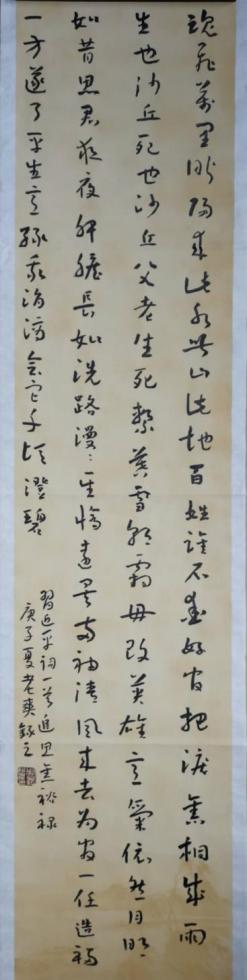 魂飞万里盼归来此水此山此地百姓谁不爱好官把泪焦桐成雨
生也沙丘死也沙丘父老生死系暮雪朝霜毋改英雄意气依然月明
如昔思君夜夜肝胆长如洗路漫漫其修远矣两袖清风来去为官一任造福
一方遂了平生意绿我涓滴会它千顷澄碧
习近平词一首追思焦裕禄
庚子夏老爽録之